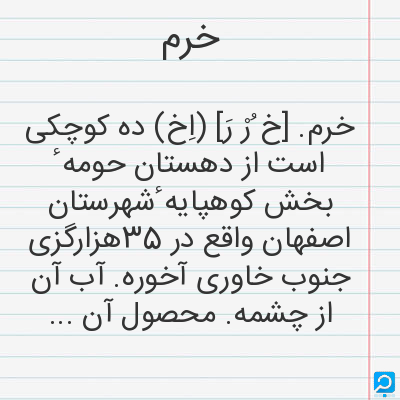 خرم
خرم. [خ ُرْ رَ] (اِخ) ده کوچکی
است از دهستان حومه ٔ
بخش کوهپایه ٔشهرستان
اصفهان واقع در ۳۵هزارگزی
جنوب خاوری آخوره. آب آن
از چشمه. محصول آن ...